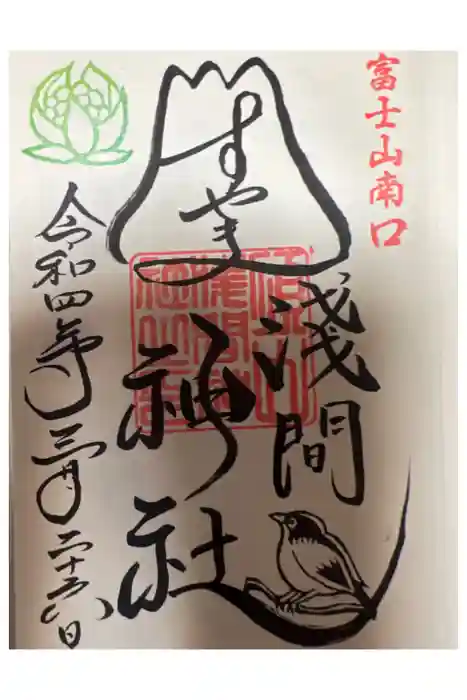 富士山南口
すやま
浅間
神社
令和四年三月二十六日